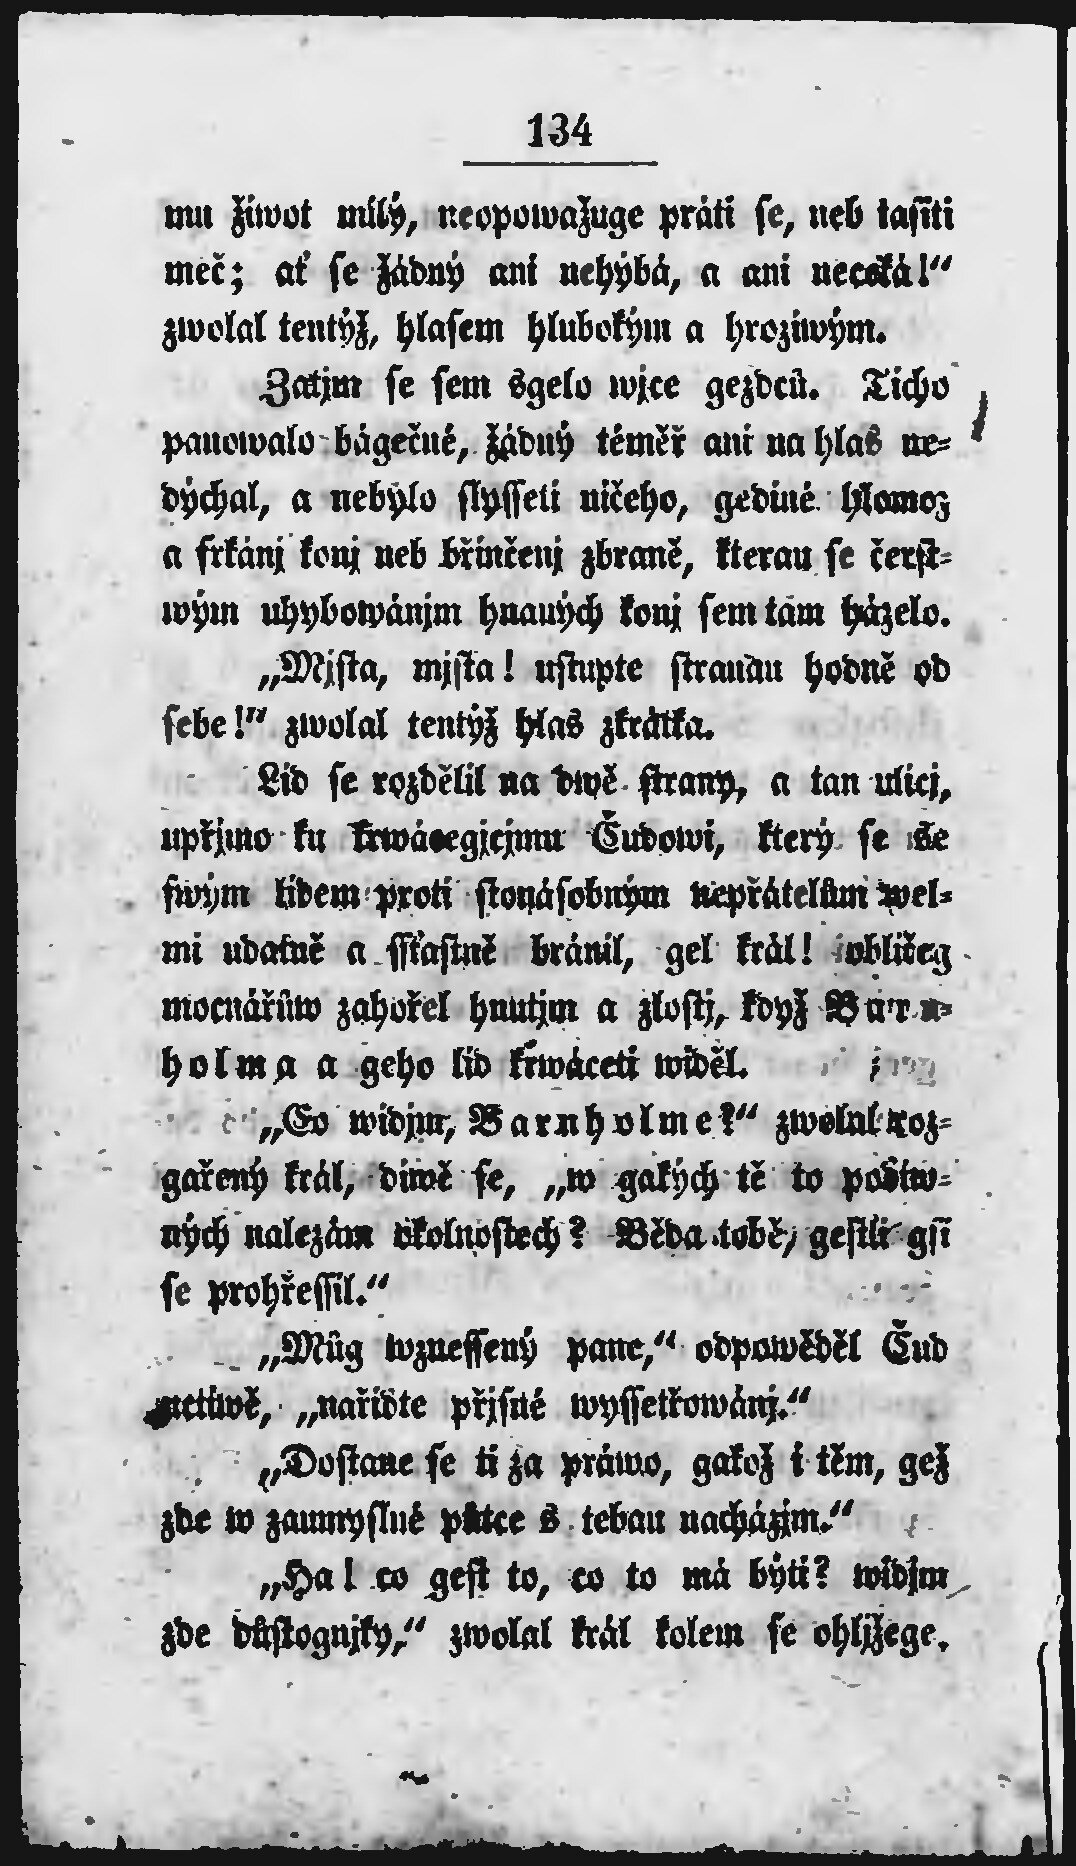 134
mu žiwot milý, neopowažuge práti se, neb tasiti
meč; ať se žádný ani nehýbá, a ani necská!“
zwolal tentýž, hlasem hlubokým a hroziwým.
Zatjm se sem sgelo wjce gezdců. Ticho
panowalo bágečné, žádný téměř ani na hlas ne-
dýchal, a nebylo slysseti ničeho, gediné hlomoz
a frkánj konj neb břinčenj zbraně, kterau se čerst-
wým uhybowánjm hnaných konj sem tam házelo.
„Mjsta, mjsta! ustupte strandu hodně od
sebe!“ zwolal tentýž hlas zkrátka.
Lid se rozdělil na dwě strany, a tan ulicj,
upřjmo ku krwácegjcjmu Čudowi, který se se
swým lidem proti stonásobným nepřátelům wel-
mi udatně a ssťastně bránil, gel král! obličeg
mocnářůw zahořel hnutjm a zlostj, když Barn-
holma a geho lid krwáceti widěl.
„Co widjm, Barnholme?“ zwolal roz-
gařený král, diwě se, „w gakých tě to podiw-
ných nalezám okolnostech? Běda tobě, gestli gsi
se prohřessil.“
„Můg wznessený pane,“ odpowěděl Čud
uctiwě, „nařiďte přjsné wyssetřowánj.“
„Dostane se ti za práwo, gakož i těm, gež
zde w zaumyslné půtce s tebau nacházjm.“
„Ha! co gest to, co to má býti? widjm
zde důstognjky,“ zwolal král kolem se ohljžege.